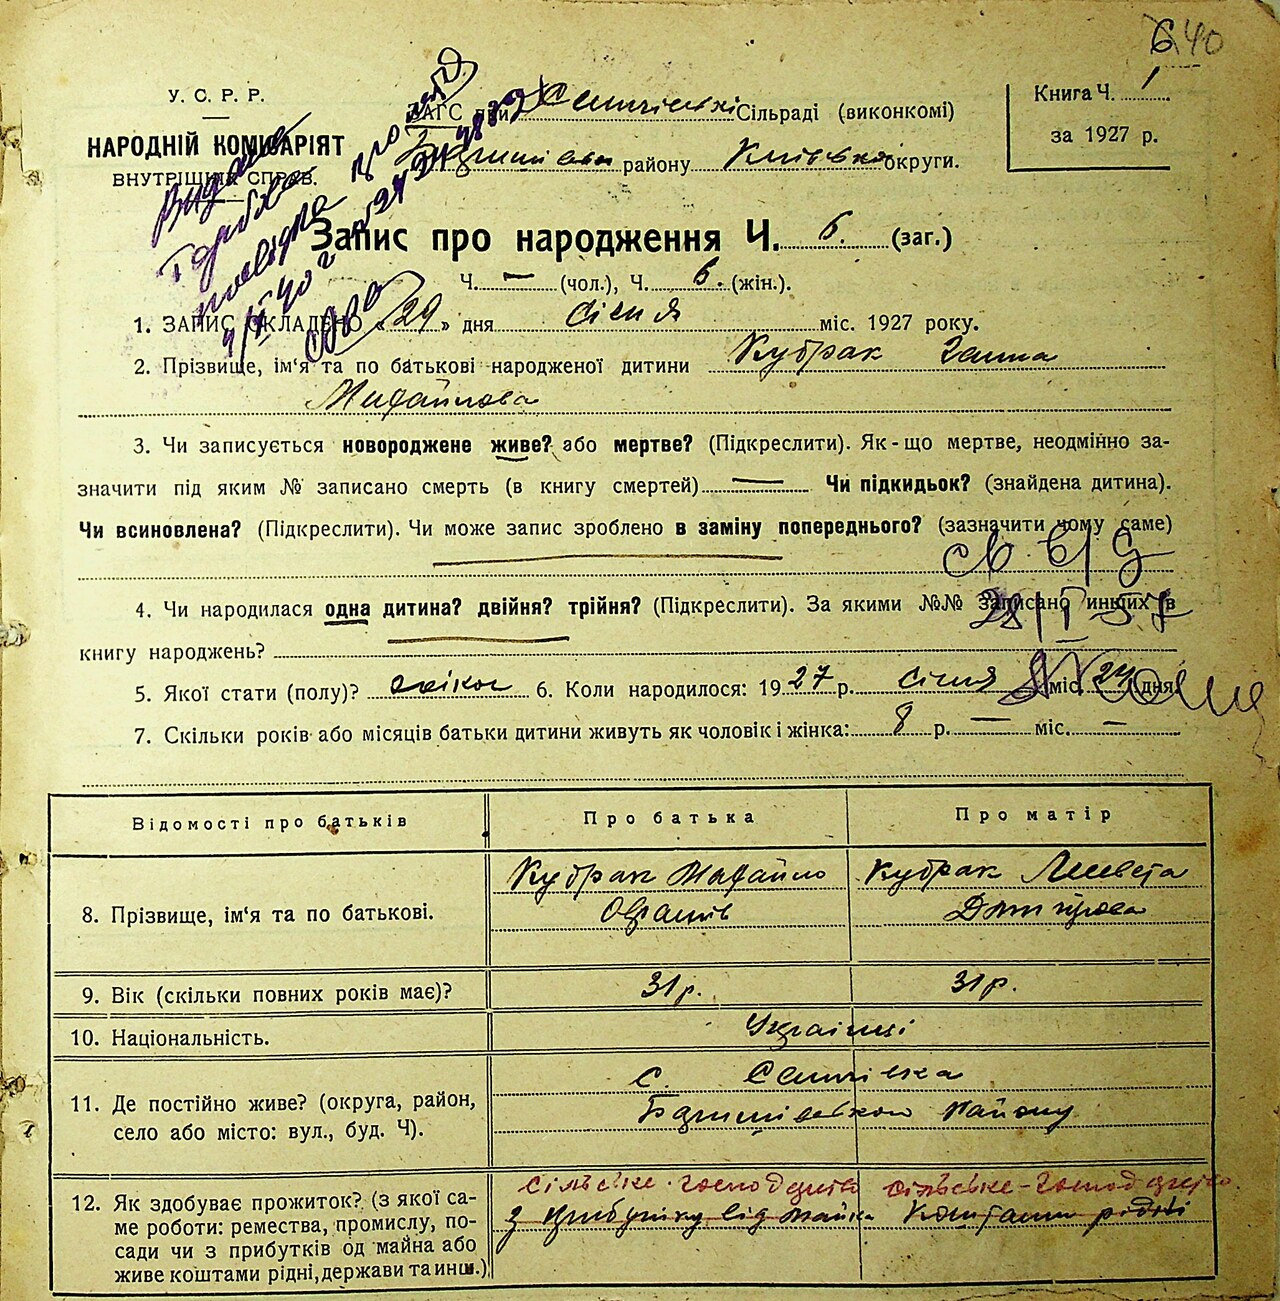 640
У. С. Р. Р.
НАРОДНІЙ КОМІСАРІЯТ
ВНУТРІШНІХ СПРАВ.
ЗАГС при Сільраді (виконкомі)
району Київської округи.
Книга Ч. 1
за 1927 р.
Запис про народження Ч. 6. (заг.)
Ч. — (чол.), Ч. 6. (жін.).
1. ЗАПИС СКЛАДЕНО «29» дня січня міс. 1927 року.
2. Прізвище, ім'я та по батькові народженої дитини Кубрак Ганна
Михайлова
3. Чи записується новороджене живе? або мертве? (Підкреслити). Як-що мертве, неодмінно за-
значити під яким № записано смерть (в книгу смертей) — Чи підкидьок? (знайдена дитина).
Чи всиновлена? (Підкреслити). Чи може запис зроблено в заміну попереднього? (зазначити чому саме)
4. Чи народилася одна дитина? двійня? трійня? (Підкреслити). За якими №№ записано инших в
28/I-57
книгу народжень?
5. Якої стати (полу)? жіноч 6. Коли народилося: 1927 р. січня міс. 24 дня.
7. Скільки років або місяців батьки дитини живуть як чоловік і жінка: 8 р. — міс. —
Відомості про батьків Про батька Про матір
8. Прізвище, ім'я та по батькові.
Кубрак Михайло
Кубрак
Дмитрова
9. Вік (скільки повних років має)? 31 р. 31 р.
10. Національність. Українці
11. Де постійно живе? (округа, район,
село або місто: вул., буд. Ч).
с.
району
12. Як здобуває прожиток? (з якої са-
ме роботи: ремества, промислу, по-
сади чи з прибутків од майна або
живе коштами рідні, держави та инш.)
сільське-господарство
з прибутку від майна
сільське-господарство
коштами рідні